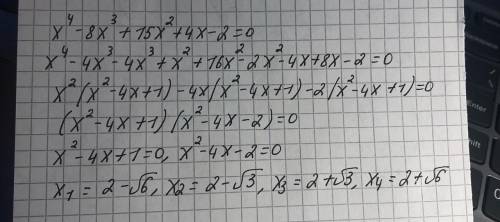 x⁴-8x³+15x²+4x-2=0
x⁴-4x³-4x³+x²+16x²-2x²-4x+8x-2=0
x²(x²-4x+1)-4x(x²-4x+1)-2(x²-4x+1)=0
(x²-4x+1)(x²-4x-2)=0
x²-4x+1=0, x²-4x-2=0
x₁=2-√6, x₂=2-√3, x₃=2+√3, x₄=2+√6